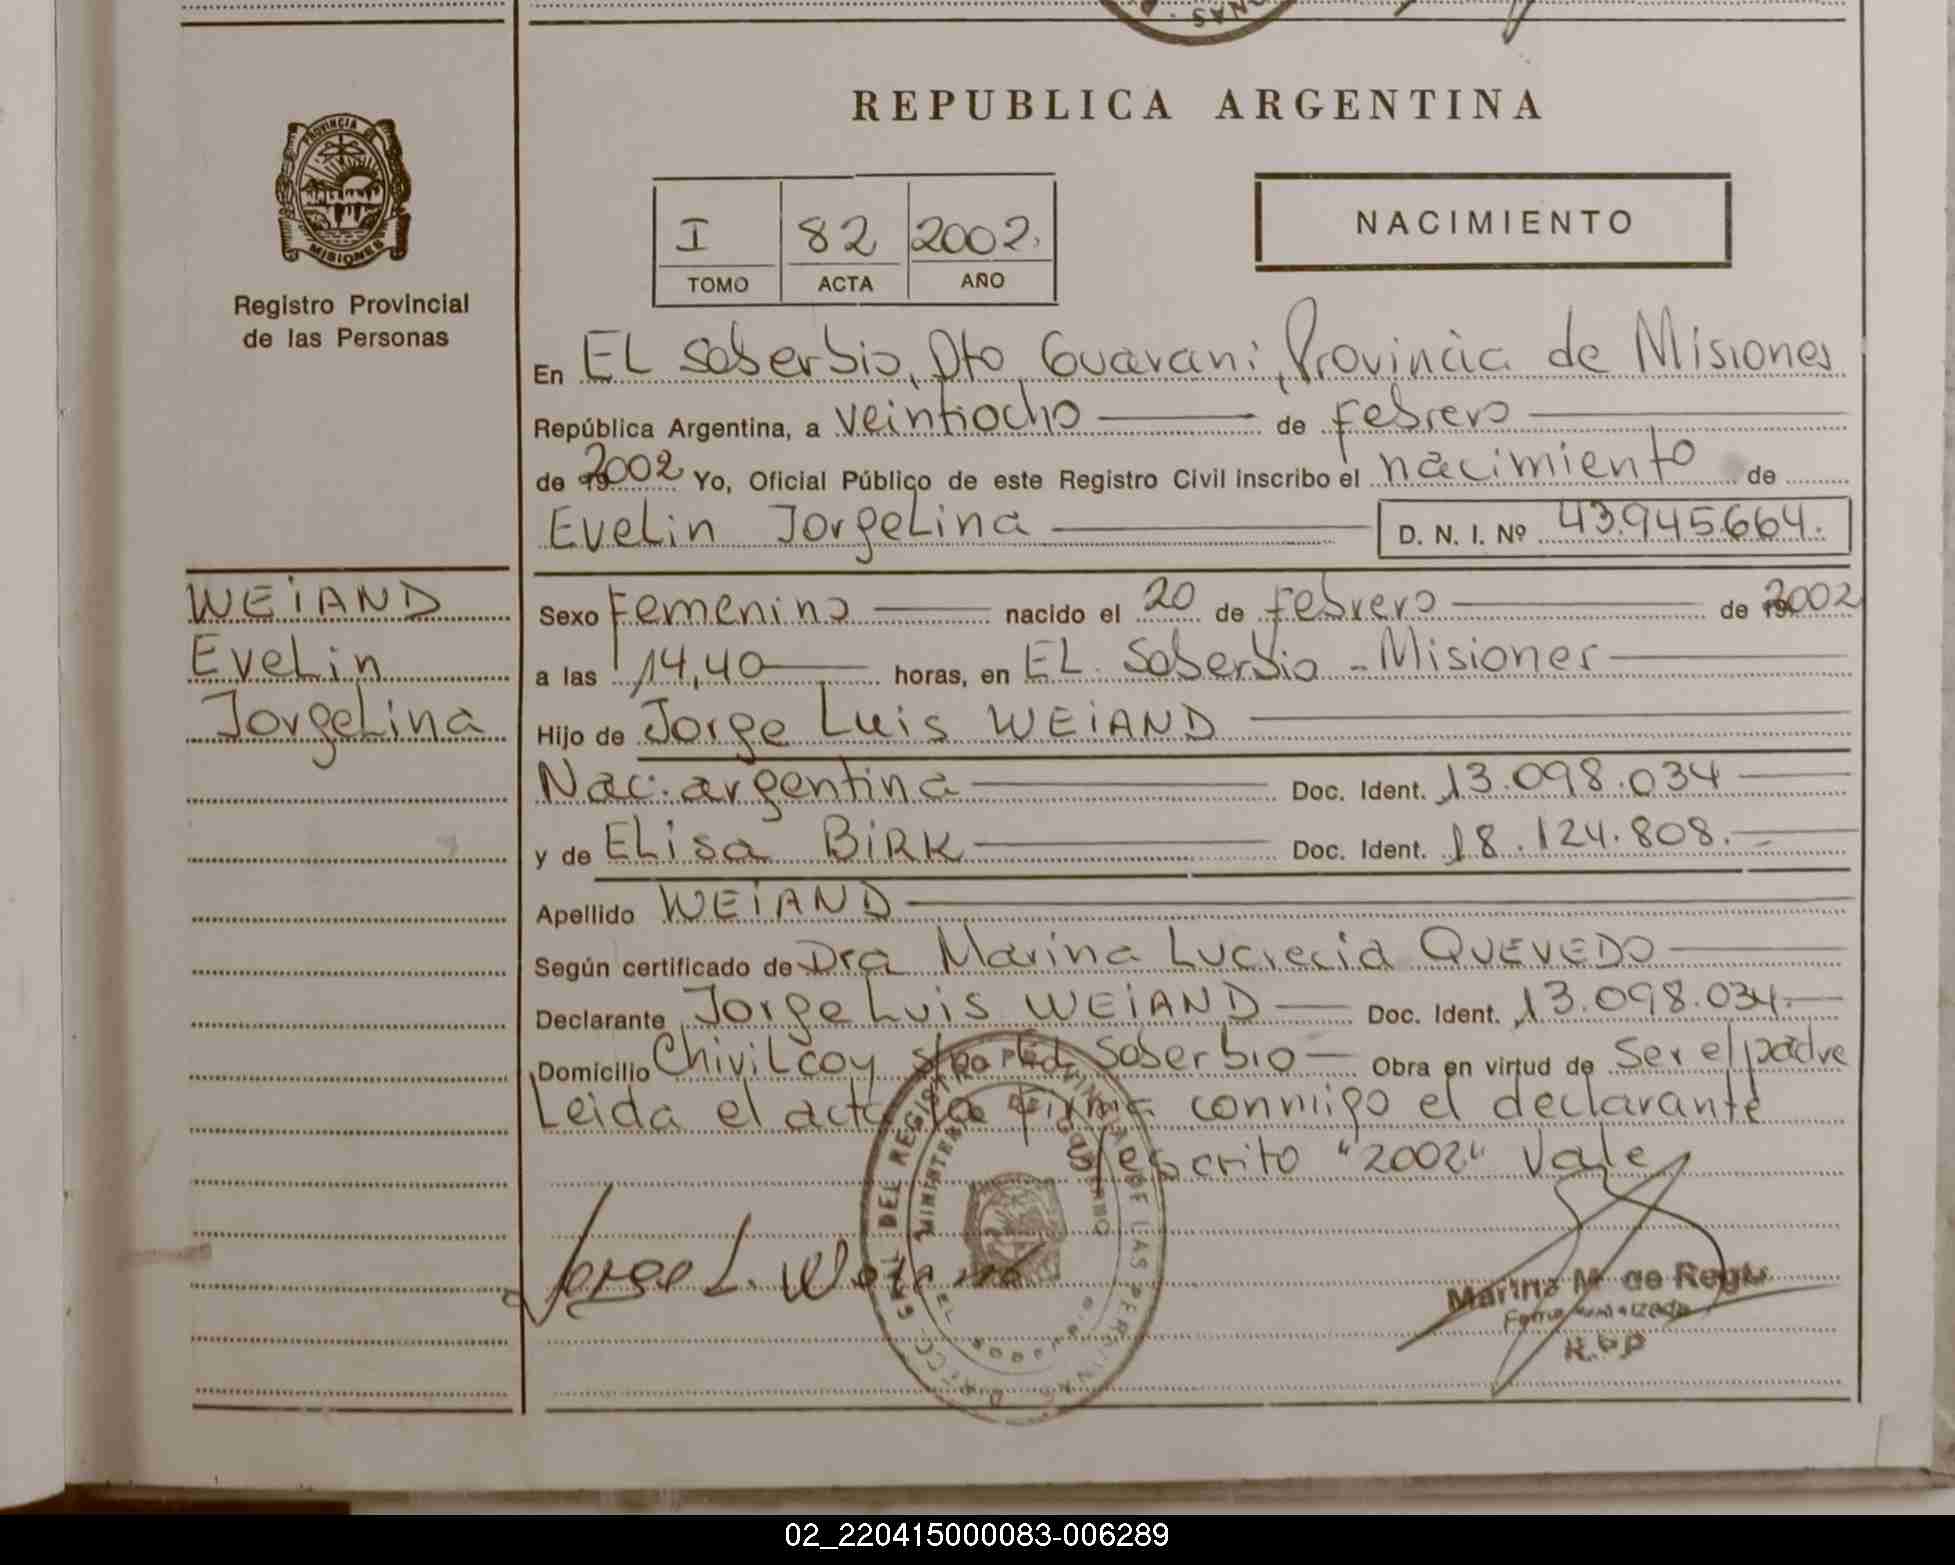 REPUBLICA ARGENTINA
PROVINCIA DE
MISIONES
Registro Provincial
de las Personas
I 82 2002.
TOMO ACTA AÑO
NACIMIENTO
En EL Soberbio, Dto Guarani, Provincia de Misiones
República Argentina, a veintiocho de febrero
de 2002 Yo, Oficial Público de este Registro Civil inscribo el nacimiento de
Evelin Jorgelina D. N. I. Nº 43.945.664.
WEIAND
Evelin
Jorgelina
Sexo Femenino nacido el 20 de febrero de 2002
a las 14,40 horas, en EL Soberbio - Misiones
Hijo de Jorge Luis WEIAND
Nac. argentina Doc. Ident. 13.098.034
y de Elisa BIRK Doc. Ident. 18.124.808.
Apellido WEIAND
Según certificado de Dra Marina Lucrecia QUEVEDO
Declarante Jorge Luis WEIAND Doc. Ident. 13.098.034.
Domicilio Chivilcoy Soberbio Obra en virtud de ser el padre
Leida el acta la firma conmigo el declarante
s/escrito "2002" Vale
Jorge L. Weiand
MINISTERIO DE GOBIERNO
EL SOBERBIO
Marina M. de Reg
R.P.P
02_220415000083-006289